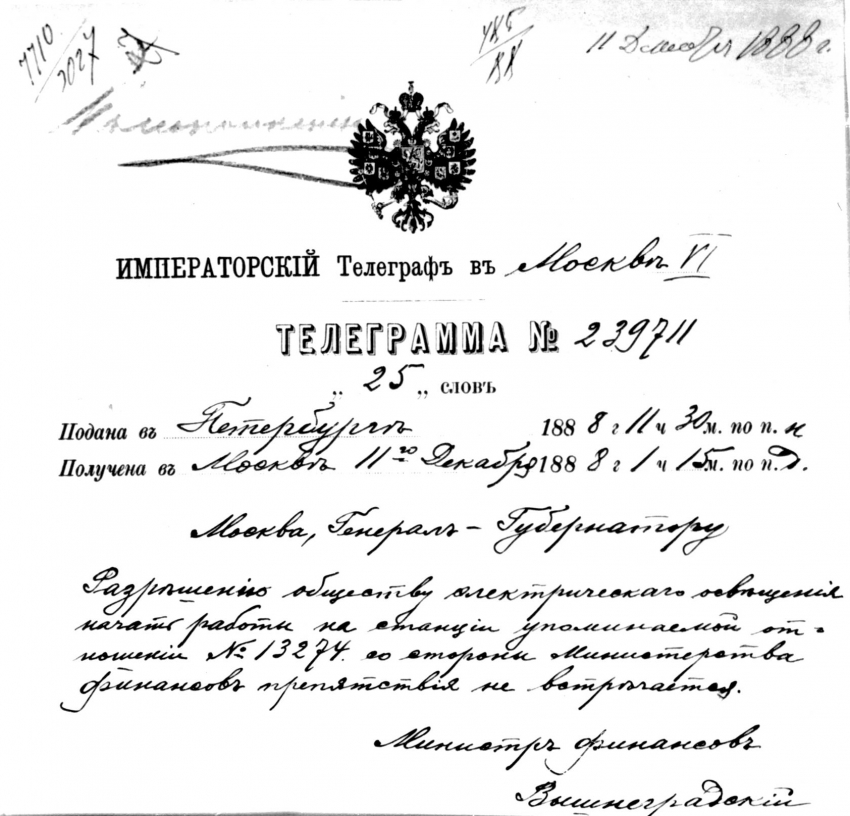 7710
3027
485
88
11 Декабря 1888 г.
ИМПЕРАТОРСКІЙ Телеграфъ въ Москвѣ VI
ТЕЛЕГРАММА № 239711
„ 25 „ словъ
Подана въ Петербургѣ 1888 г 11 ч 30 м. по п. н
Получена въ Москвѣ 11го Декабря 1888 г 1 ч 15 м. по п. д.
Москва, Генералъ-Губернатору
Разрѣшенію обществу электрическаго освѣщенія
начать работы на станціи упоминаемой от-
ношеніи № 13274. со стороны Министерства
финансовъ препятствія не встрѣчается.
Министръ финансовъ
Вышнеградскій